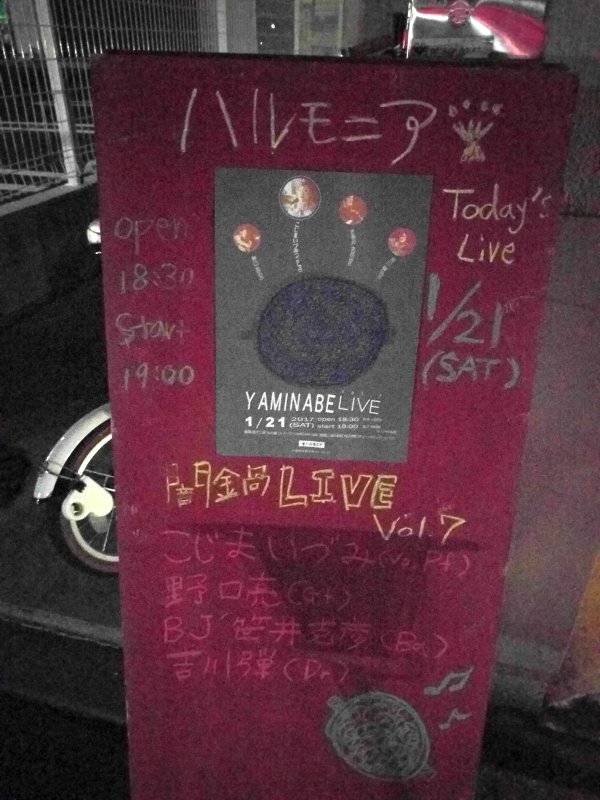 ハルモニア
Today's
Live
open
18:30
Start
19:00
1/21
(SAT)
YAMINABE LiVE
1/21 2017 open 18:30
(SAT) start 19:00
闇鍋LIVE
Vol.7
こじまいづみ(Vo,Pf)
野口亮(Gt)
BJ 笹井克彦(Ba)
吉川弾(Dr)